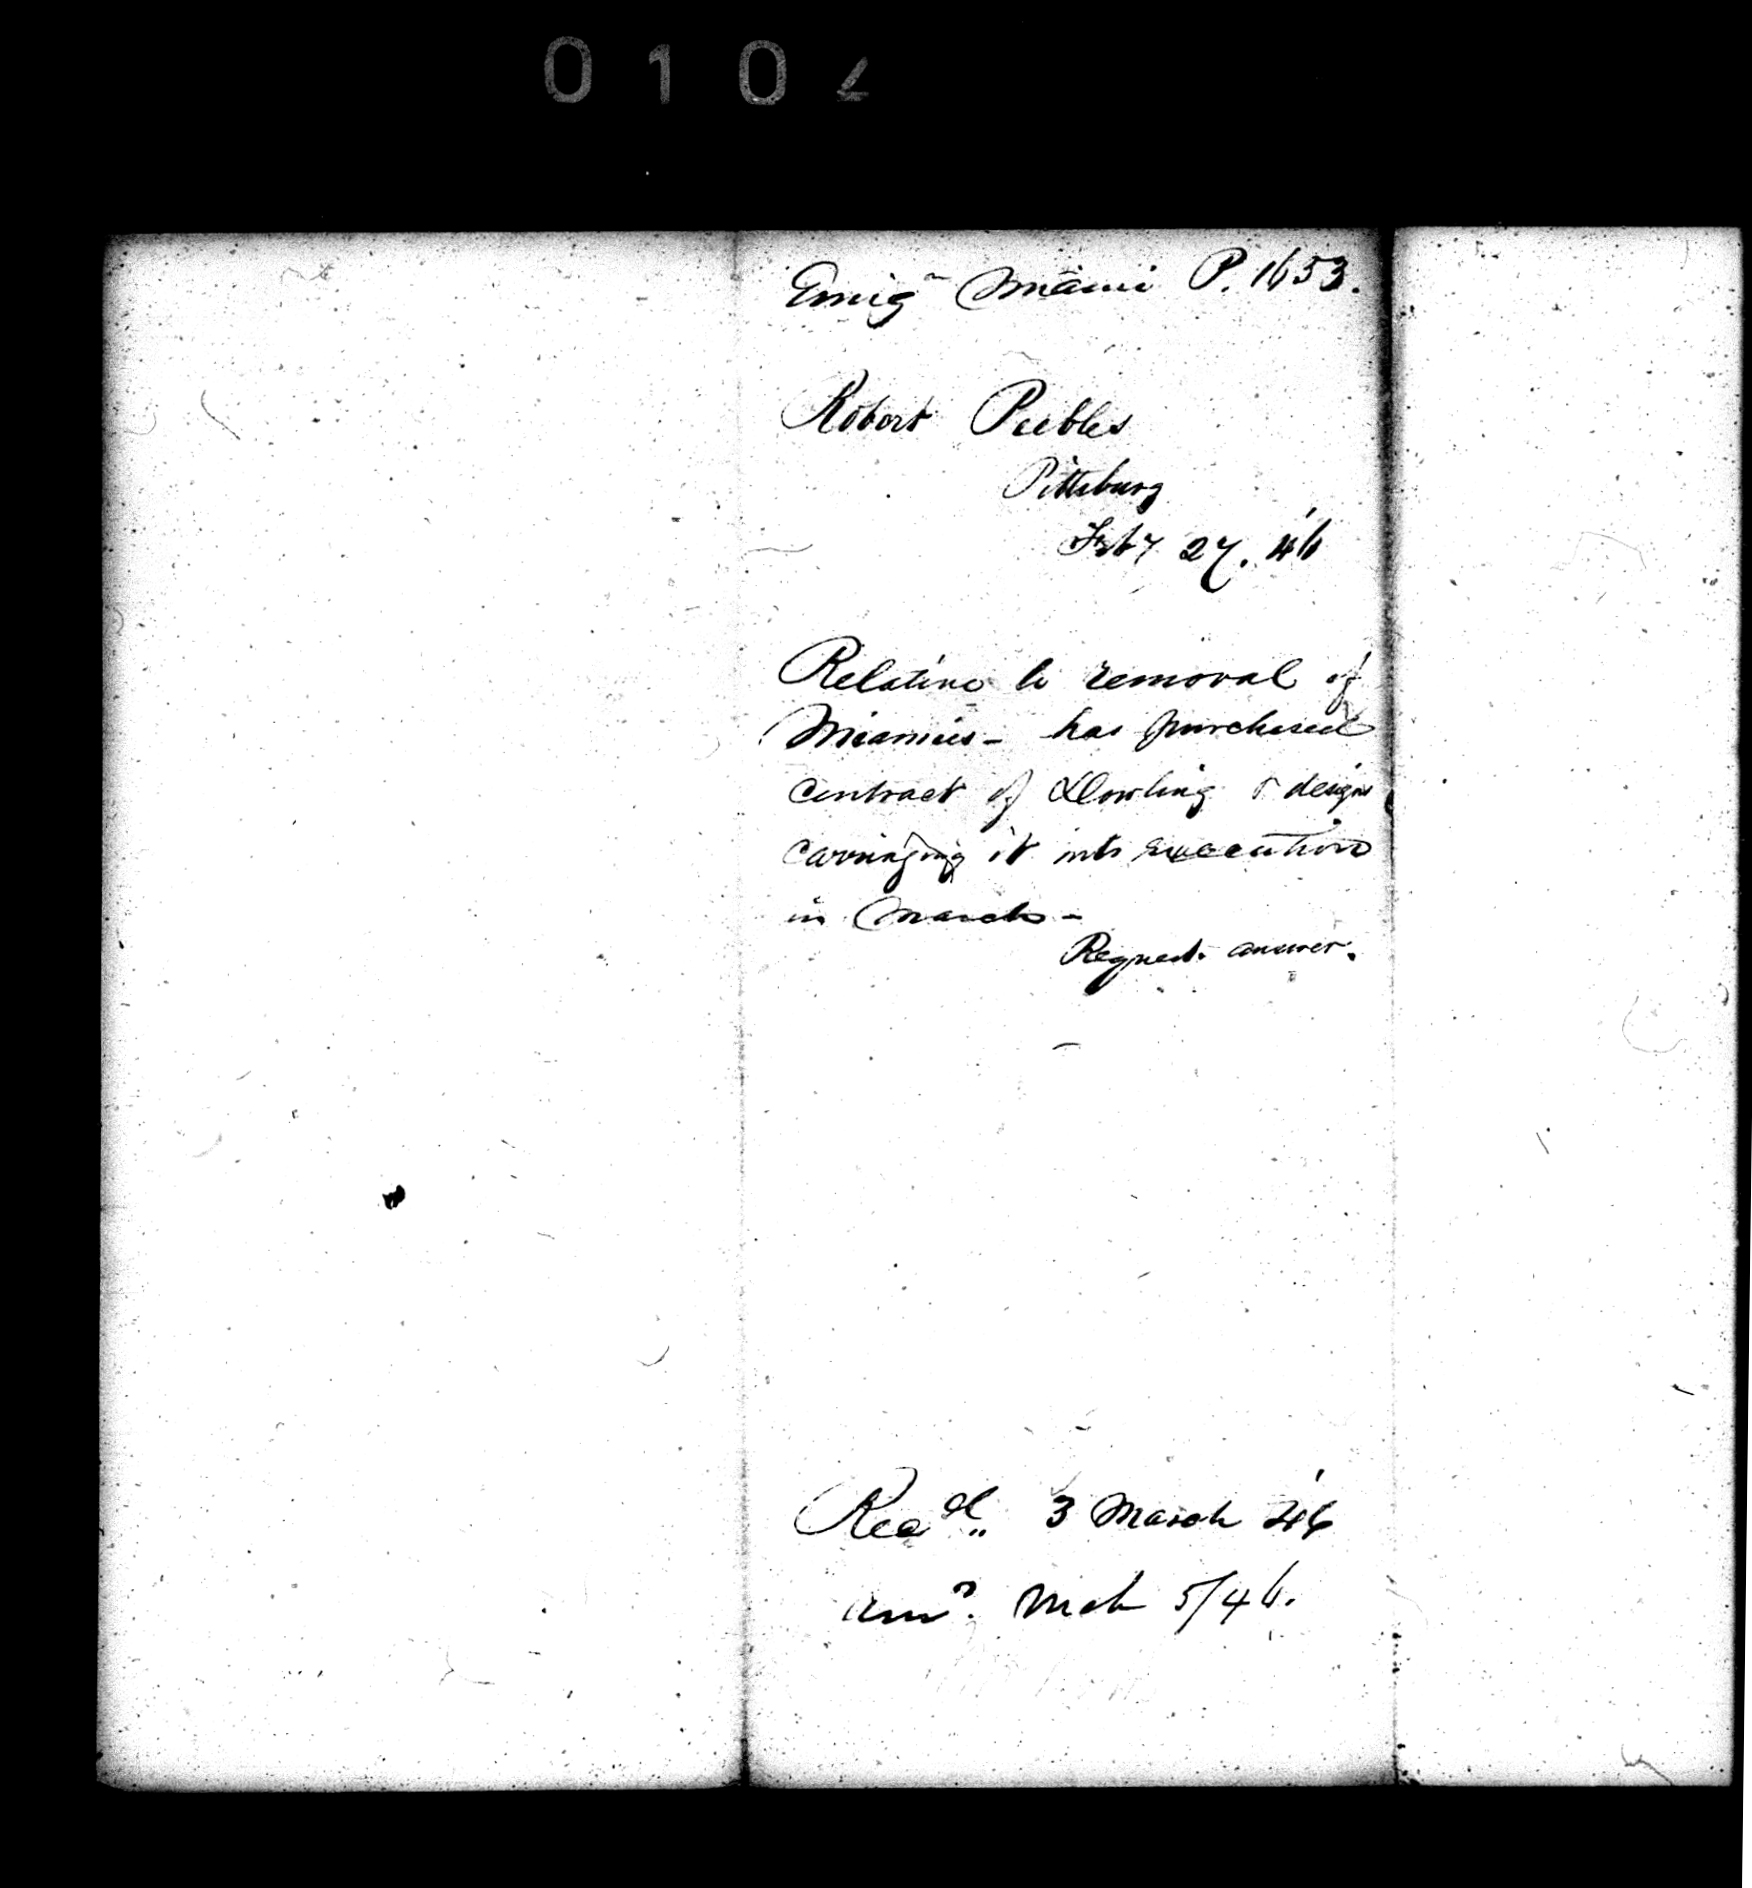 010
Emigⁿ Miami P. 1653.
Robert Peebles
Pittsburg
Feby 27. '46
Relative to removal of
Miamies - has purchased
contract of Dowling & designs
carrying it into execution
in March -
Request answer.
Recd 3 March '46
ansd. Mch 5/46.